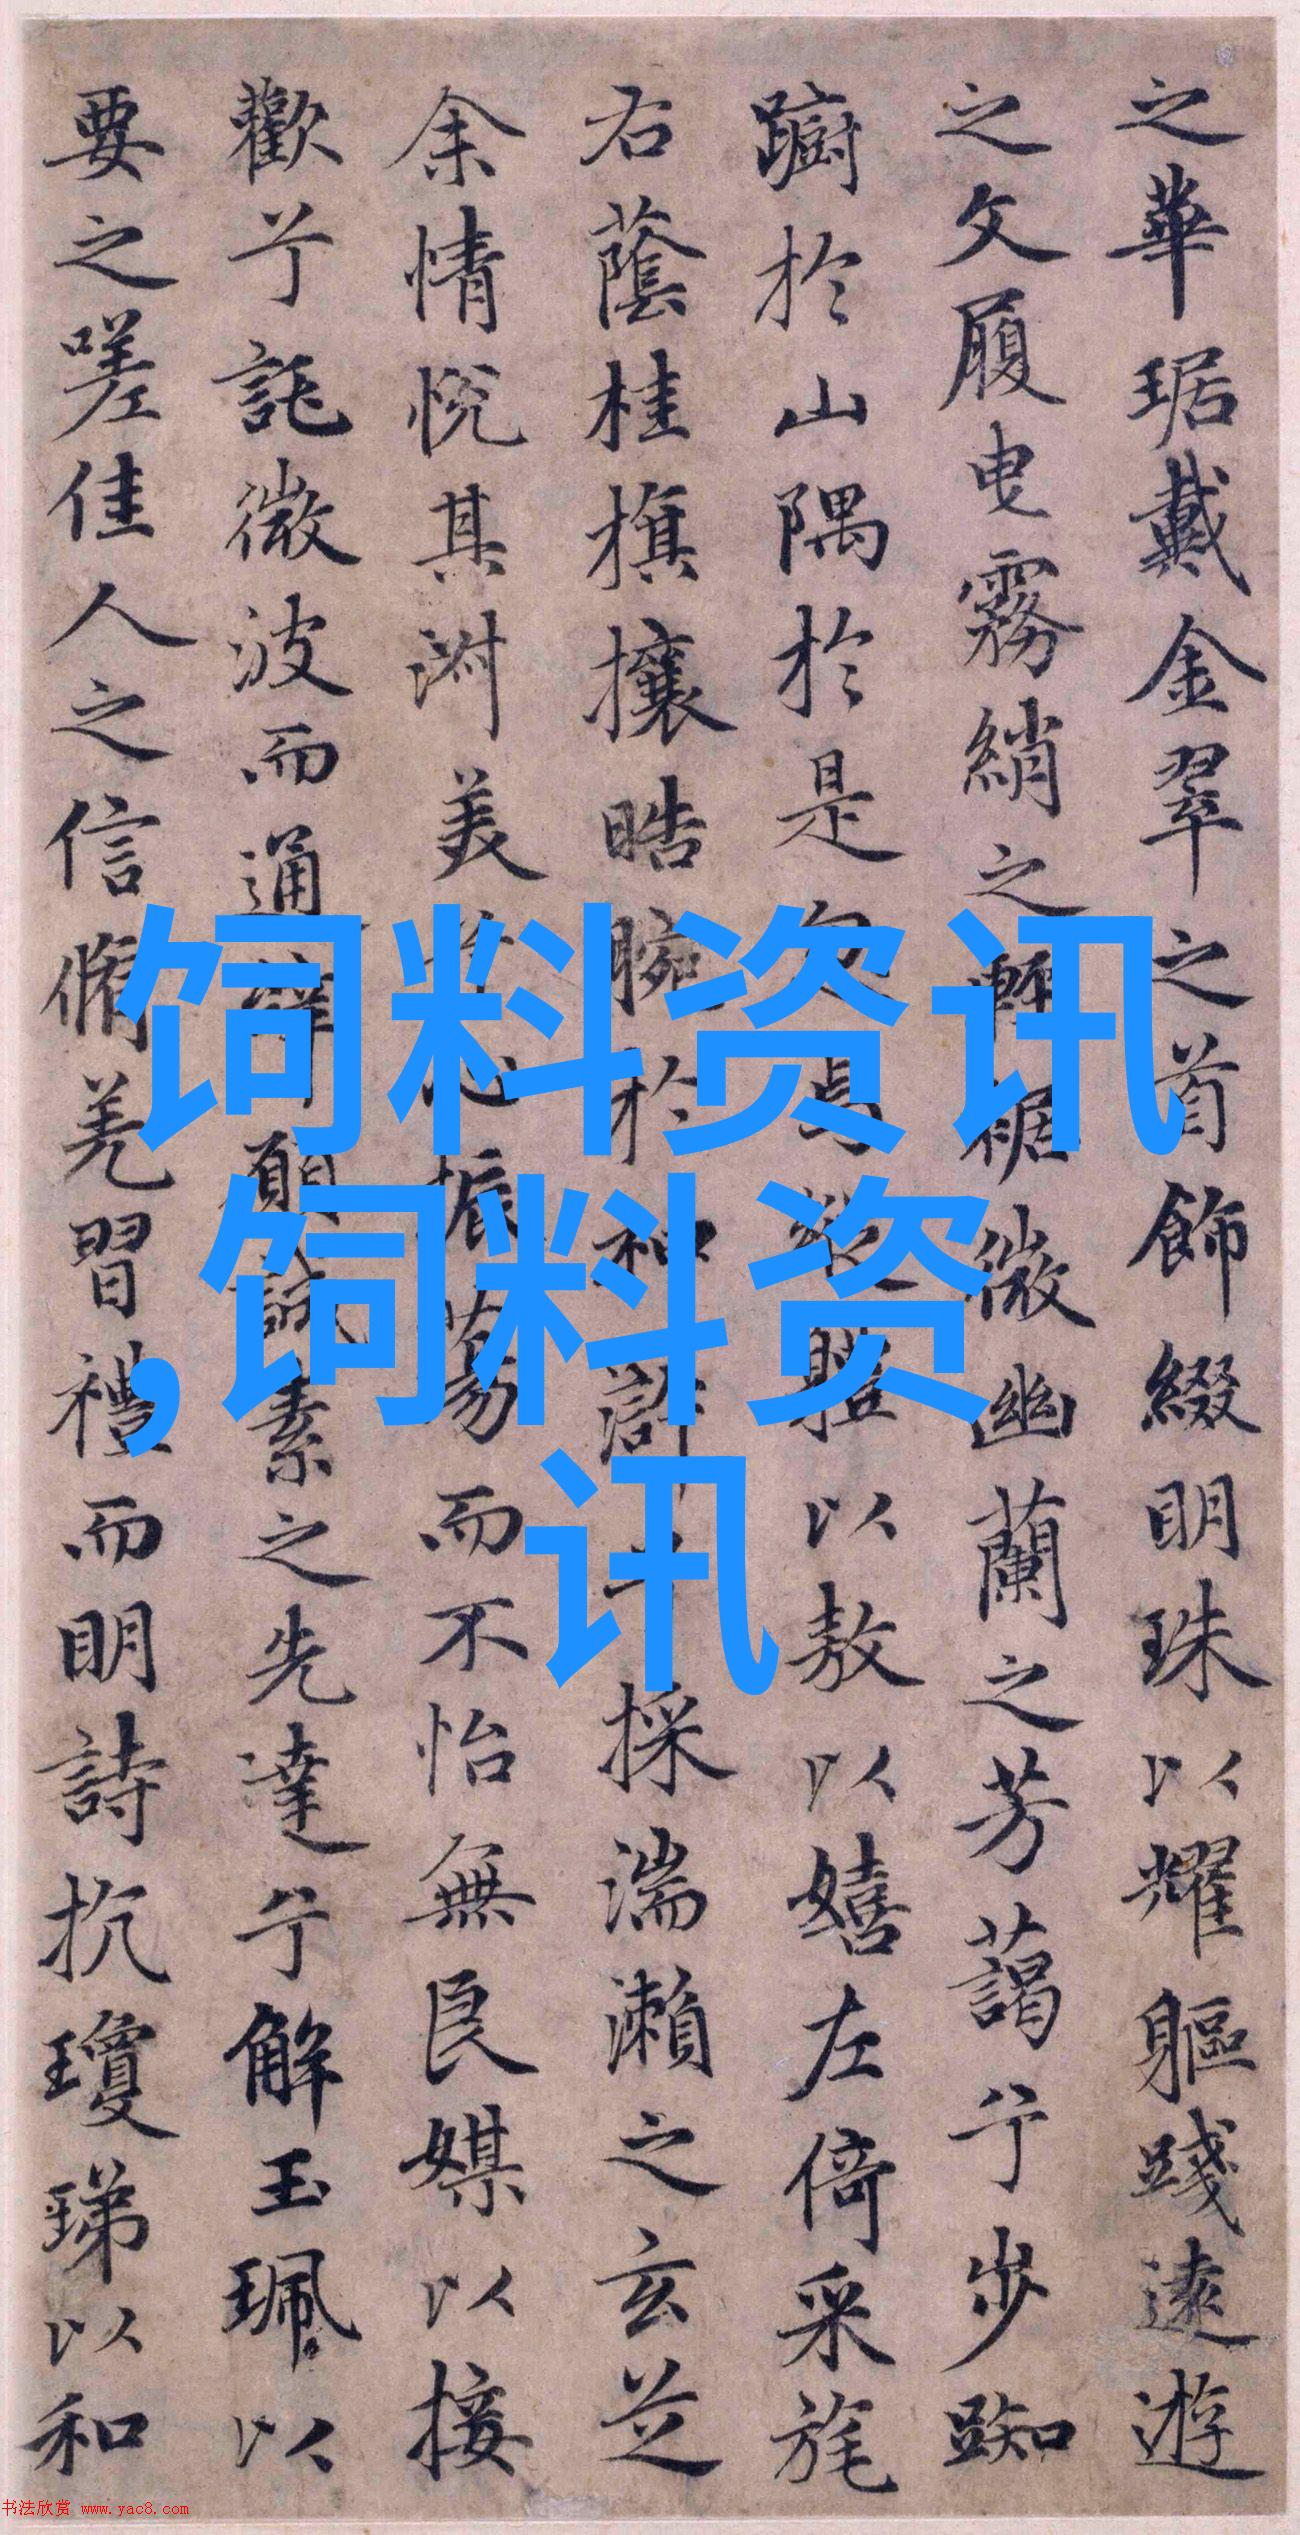 之華琚戴金翠之首飾綴明珠以耀軀踐遠遊
之文履曳霧綃之輕裾微幽蘭之芳藹兮步踟
躕於山隅於是忽焉縱體以敖以嬉左倚采旄
右蔭桂旗攘晧腕於神滸兮採湍瀨之玄芝
余情悅其淑美兮心振蕩而不怡無良媒以接
歡兮託微波而通辭願誠素之先達兮解玉珮以
要之嗟佳人之信脩羌習禮而明詩抗瓊珶以和
饲料资讯
,饲料资
讯
书法欣赏 www.yac8.com